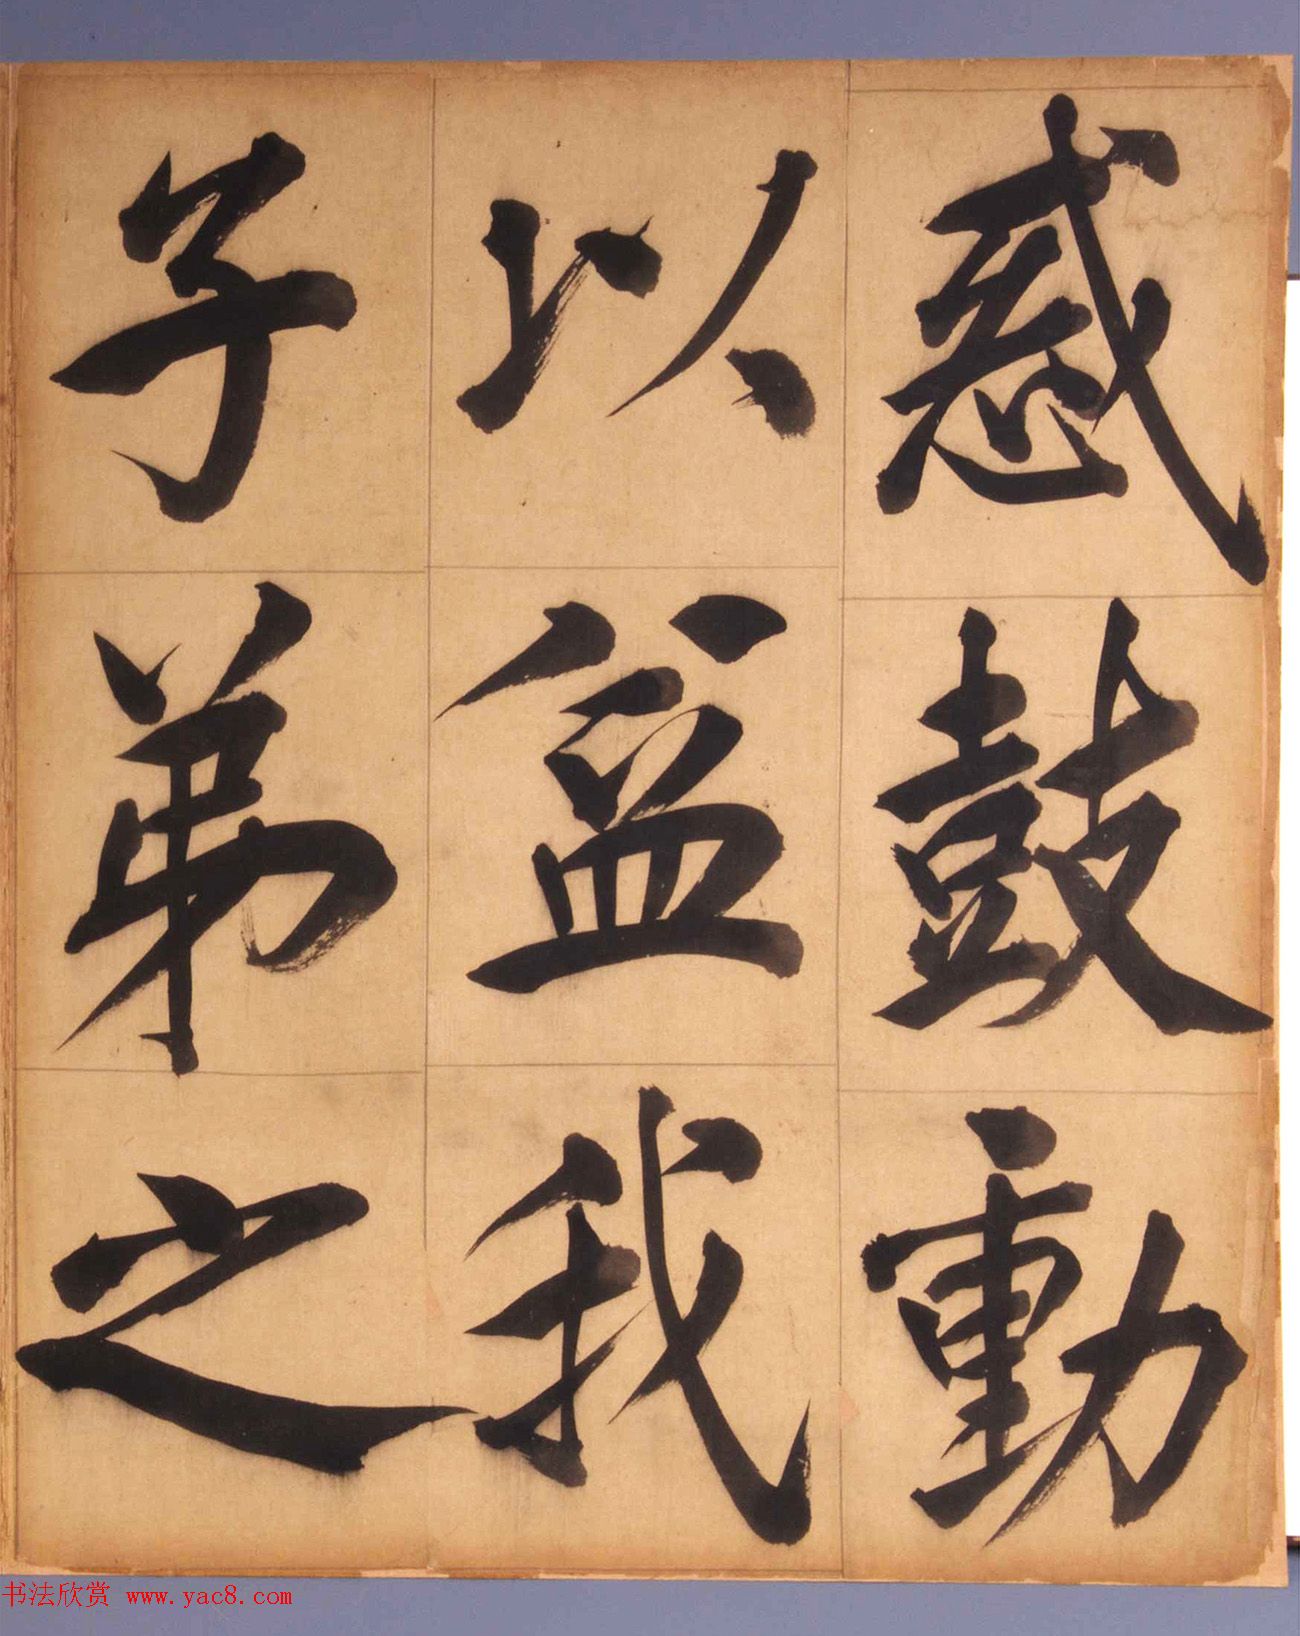 惑鼓動
以益我
子弟之
书法欣赏 www.yac8.com